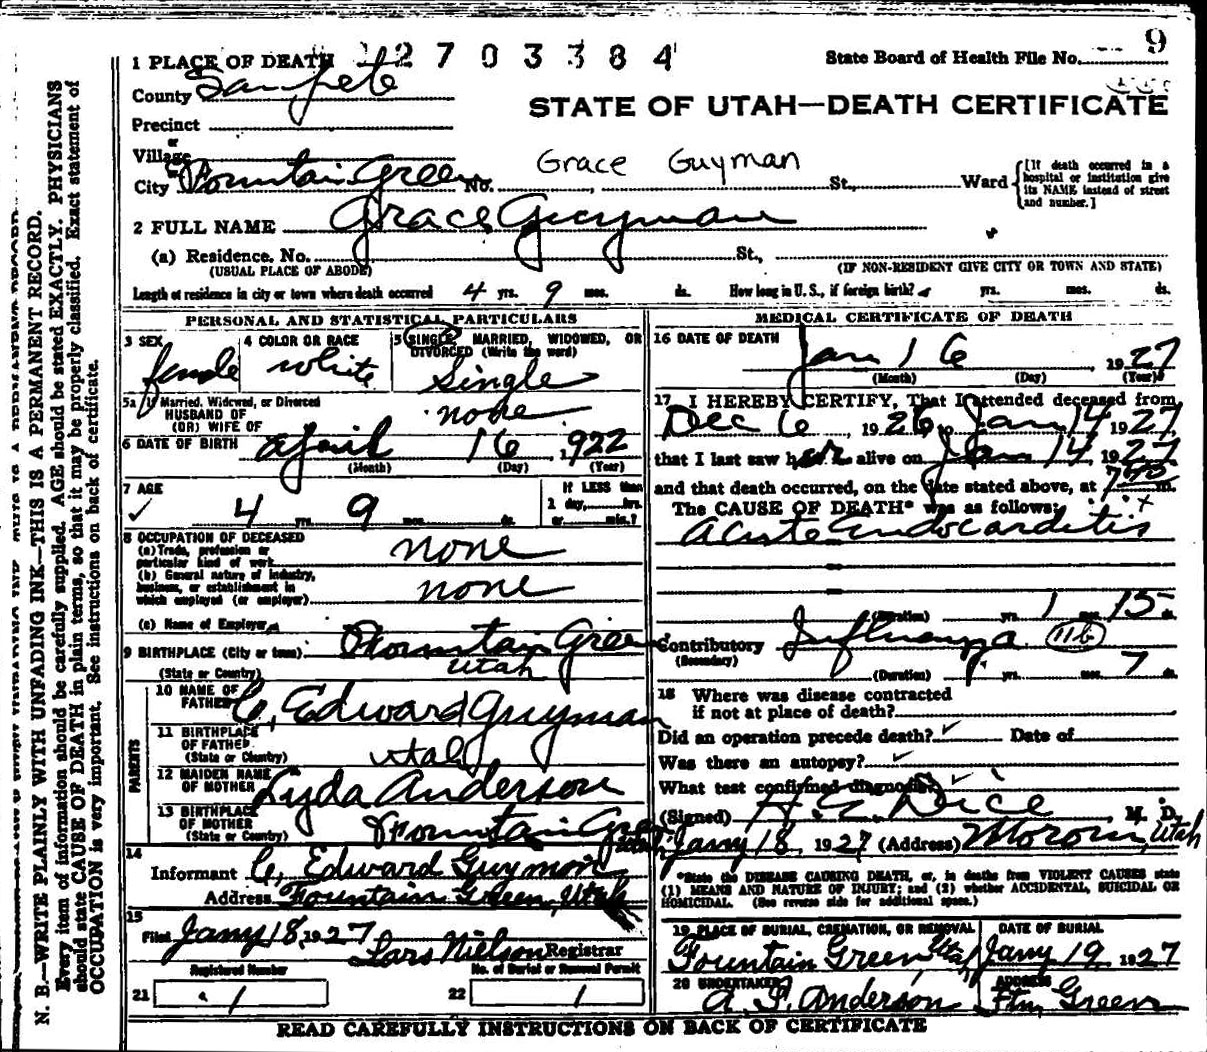 1 PLACE OF DEATH 2703384 State Board of Health File No. 9
County Sanpete
STATE OF UTAH—DEATH CERTIFICATE
Precinct
or
Village
or
City Fountain Green No. St., Ward
Grace Guyman
[If death occurred in a hospital or institution give its NAME instead of street and number.]
2 FULL NAME Grace Guyman
(a) Residence. No. St.,
(USUAL PLACE OF ABODE) (IF NON-RESIDENT GIVE CITY OR TOWN AND STATE)
Length of residence in city or town where death occurred 4 yrs. 9 mos. ds. How long in U. S., if foreign birth? yrs. mos. ds.
PERSONAL AND STATISTICAL PARTICULARS
3 SEX female
4 COLOR OR RACE white
5 SINGLE, MARRIED, WIDOWED, OR DIVORCED (Write the word) Single
5a If Married, Widowed, or Divorced
HUSBAND OF
(OR) WIFE OF none
6 DATE OF BIRTH April 16, 1922
(Month) (Day) (Year)
7 AGE 4 yrs. 9 mos. ds.
If LESS than
1 day, hrs.
or min.?
8 OCCUPATION OF DECEASED
(a) Trade, profession or particular kind of work none
(b) General nature of industry, business, or establishment in which employed (or employer) none
(c) Name of Employer
9 BIRTHPLACE (City or town) Fountain Green
(State or Country) Utah
PARENTS
10 NAME OF FATHER C. Edward Guyman
11 BIRTHPLACE OF FATHER (State or Country) Utah
12 MAIDEN NAME OF MOTHER Lyda Anderson
13 BIRTHPLACE OF MOTHER (State or Country) Fountain Green Utah
14 Informant C. Edward Guymon
Address Fountain Green, Utah
15 Filed Jany 18, 1927 Lars Nielson Registrar
Registered Number No. of Burial or Removal Permit
21 1 22 1
MEDICAL CERTIFICATE OF DEATH
16 DATE OF DEATH Jan 16 1927
(Month) (Day) (Year)
17 I HEREBY CERTIFY, That I attended deceased from
Dec 6, 1926, to Jan 14 1927
that I last saw her alive on Jan 14, 1927
and that death occurred, on the date stated above, at m.
The CAUSE OF DEATH* was as follows:
Acute Endocarditis
(Duration) yrs. 1 mos. 15 ds.
Contributory Influenza 11b
(Secondary)
(Duration) yrs. mos. 7 ds.
18 Where was disease contracted
if not at place of death?
Did an operation precede death? Date of
Was there an autopsy?
What test confirmed diagnosis?
(Signed) M. D.
Jany 18, 1927 (Address) Moroni, Utah
*State the DISEASE CAUSING DEATH, or, in deaths from VIOLENT CAUSES state
(1) MEANS AND NATURE OF INJURY; and (2) whether ACCIDENTAL, SUICIDAL OR
HOMICIDAL. (See reverse side for additional space.)
19 PLACE OF BURIAL, CREMATION, OR REMOVAL DATE OF BURIAL
Fountain Green Utah Jany 19, 1927
20 UNDERTAKER ADDRESS
Anderson Ftn, Green
READ CAREFULLY INSTRUCTIONS ON BACK OF CERTIFICATE
N. B.—WRITE PLAINLY WITH UNFADING INK—THIS IS A PERMANENT RECORD.
Every item of information should be carefully supplied. AGE should be stated EXACTLY. PHYSICIANS
should state CAUSE OF DEATH in plain terms, so that it may be properly classified. Exact statement of
OCCUPATION is very important. See instructions on back of certificate.